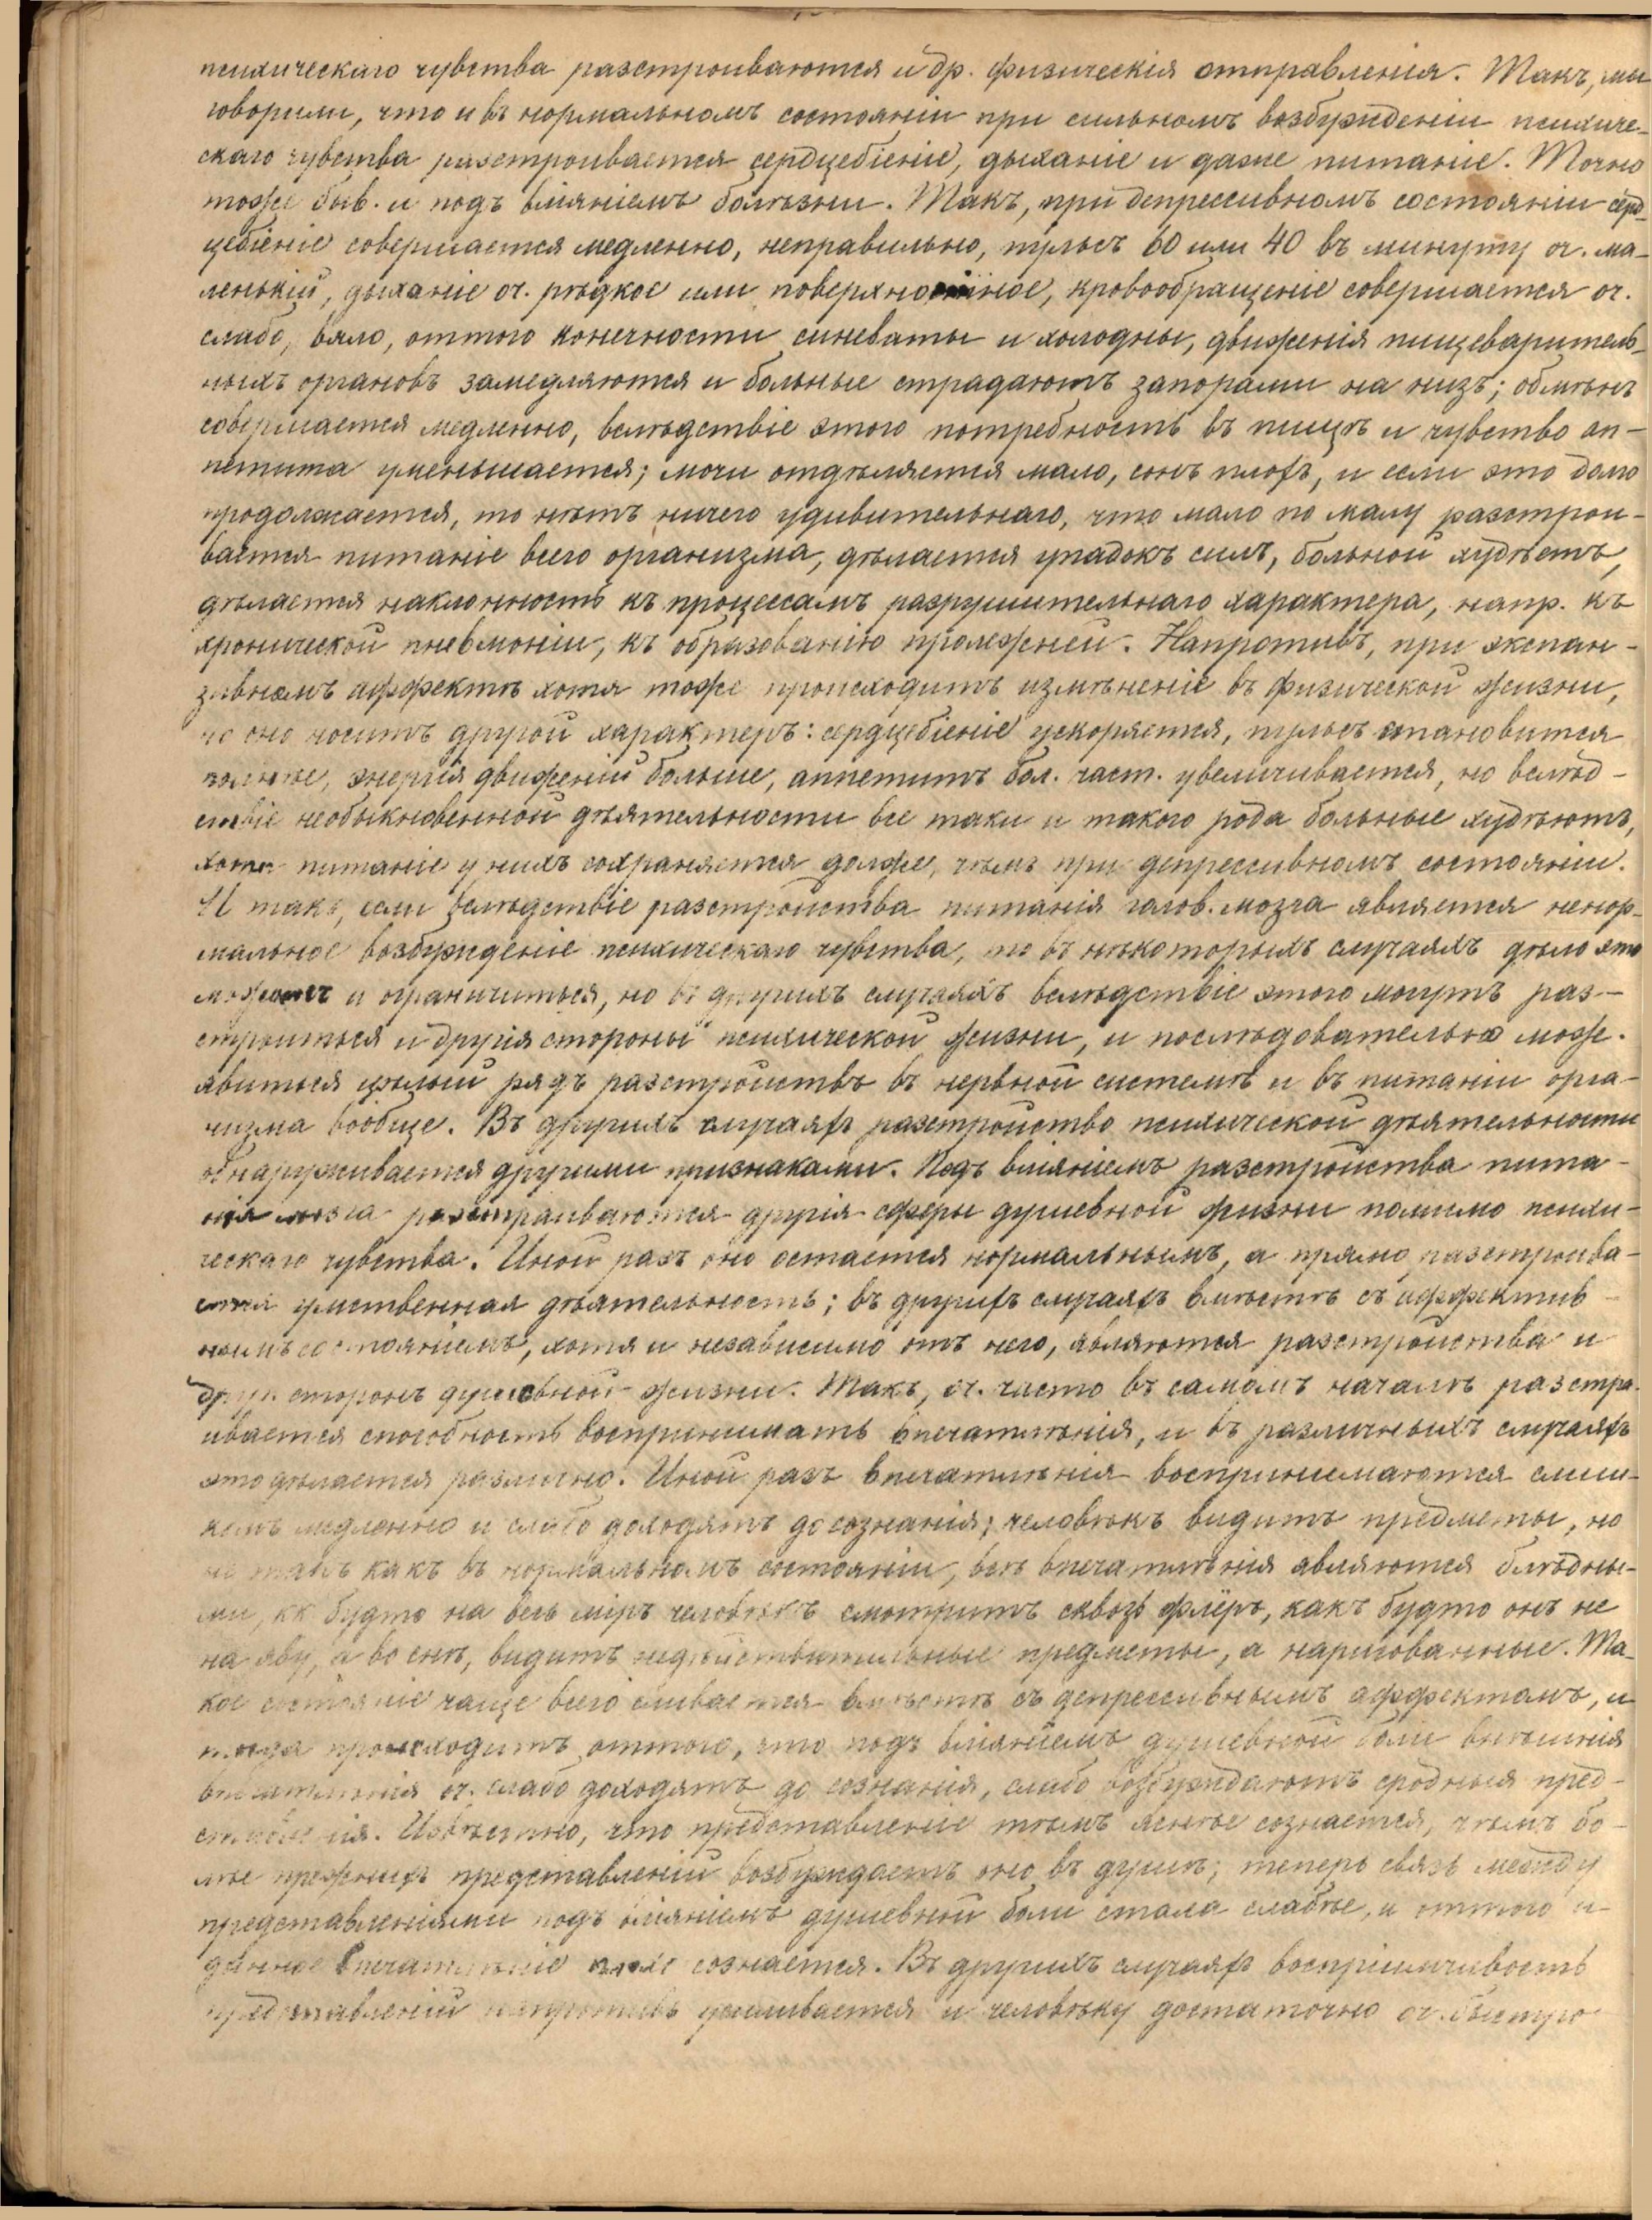 психическаго чувства разстроиваются и др. физическія отправленія. Такъ, мы
говорили, что и въ нормальномъ состояніи при сильномъ возбужденіи психиче-
скаго чувства разстроивается сердцебіеніе, дыханіе и даже питаніе. Точно
тоже быв. и подъ вліяніемъ болѣзни. Такъ, при депрессивномъ состояніи серд-
цебіеніе совершается медленно, неправильно, пульсъ 60 или 40 въ минуту оч. ма-
ленькій, дыханіе оч. рѣдкое или поверхностное, кровообращеніе совершается оч.
слабо, вяло, оттого конечности синеваты и холодны, движенія пищеваритель-
ныхъ органовъ замедляются и больные страдаютъ запорами на низъ; обмѣнъ
совершается медленно, вслѣдствіе этого потребность въ пищѣ и чувство ап-
петита уменьшается; мочи отдѣляется мало, сонъ плохъ, и если это долго
продолжается, то нѣтъ ничего удивительнаго, что мало по малу разстрои-
вается питаніе всего организма, дѣлается упадокъ силъ, больной худѣетъ,
дѣлается наклонность къ процессамъ разрушительнаго характера, напр. къ
хронической пневмоніи, къ образованію пролежней. Напротивъ, при экспан-
зивномъ аффектѣ хотя тоже происходитъ измѣненіе въ физической жизни,
но оно носитъ другой характеръ: сердцебіеніе ускоряется, пульсъ становится
полнѣе, энергія движеній больше, аппетитъ бол. част. увеличивается, но вслѣд-
ствіе необыкновенной дѣятельности все таки и такого рода больные худѣютъ,
хотя питаніе у нихъ сохраняется долже, чѣмъ при депрессивномъ состояніи.
И такъ, если вслѣдствіе разстройства питанія голов. мозга является ненор-
мальное возбужденіе психическаго чувства, то въ нѣкоторыхъ случаяхъ дѣло этимъ
можетъ и ограничиться, но въ другихъ случаяхъ вслѣдствіе этого могутъ раз-
строиться и другія стороны психической жизни, и послѣдовательно мож.
явиться цѣлый рядъ разстройствъ въ нервной системѣ и въ питаніи орга-
низма вообще. Въ другихъ случаяхъ разстройство психической дѣятельности
обнаруживается другими признаками. Подъ вліяніемъ разстройства пита-
нія мозга разстраиваются другія сферы душевной жизни помимо психи-
ческаго чувства. Иной разъ оно остается нормальнымъ, а прямо разстроива-
ется умственная дѣятельность; въ другихъ случаяхъ вмѣстѣ съ аффектив-
нымъ состояніемъ, хотя и независимо отъ него, являются разстройства и
друг. сторонъ душевной жизни. Такъ, оч. часто въ самомъ началѣ разстра-
ивается способность воспринимать впечатлѣнія, и въ различныхъ случаяхъ
это дѣлается различно. Иной разъ впечатлѣнія воспринимаются слиш-
комъ медленно и слабо доходятъ до сознанія; человѣкъ видитъ предметы, но
не такъ какъ въ нормальномъ состояніи, всѣ впечатлѣнія являются блѣдны-
ми, кк будто на весь міръ человѣкъ смотритъ сквозь флёръ, какъ будто онъ не
на яву, а во снѣ, видитъ недѣйствительные предметы, а нарисованные. Та-
кое состояніе чаще всего сливается вмѣстѣ съ депрессивнымъ аффектомъ, и
тогда происходитъ оттого, что подъ вліяніемъ душевной боли внѣшнія
впечатлѣнія оч. слабо доходятъ до сознанія, слабо возбуждаютъ сродныя пред-
ставленія. Извѣстно, что представленіе тѣмъ яснѣе сознается, чѣмъ бо-
лѣе прежнихъ представленій возбуждаетъ оно въ душѣ; теперь связь между
представленіями подъ вліяніемъ душевной боли стала слабѣе, и оттого и
данное впечатлѣніе плохо сознается. Въ другихъ случаяхъ воспріимчивость
представленій напротивъ усиливается и человѣку достаточно оч. быстро